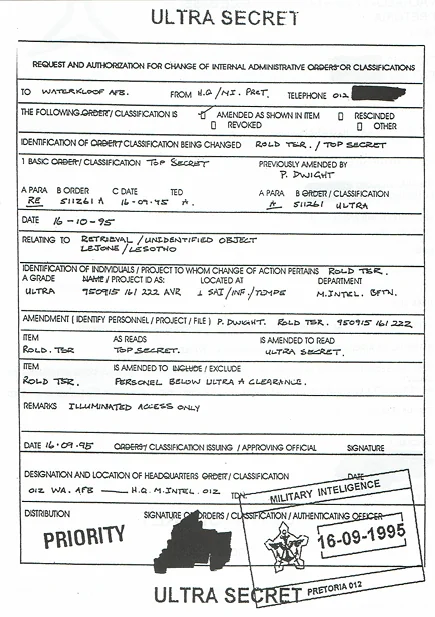 ULTRA SECRET
REQUEST AND AUTHORIZATION FOR CHANGE OF INTERNAL ADMINISTRATIVE ORDERS OR CLASSIFICATIONS
TO WATERKLOOF AFB. FROM H.Q/MI. PRET. TELEPHONE 012
THE FOLLOWING ORDER/CLASSIFICATION IS AMENDED AS SHOWN IN ITEM RESCINDED
REVOKED OTHER
IDENTIFICATION OF ORDER/CLASSIFICATION BEING CHANGED ROLD TSR. / TOP SECRET
1 BASIC ORDER/CLASSIFICATION TOP SECRET PREVIOUSLY AMENDED BY
P. DWIGHT
A PARA B ORDER C DATE TED A PARA B ORDER/CLASSIFICATION
RE 511261 A 16-09-95 A. A 511261 ULTRA
DATE 16-10-95
RELATING TO RETRIEVAL/UNIDENTIFIED OBJECT
LEJONE/LESOTHO
IDENTIFICATION OF INDIVIDUALS / PROJECT TO WHOM CHANGE OF ACTION PERTAINS ROLD TSR.
A GRADE NAME/PROJECT ID AS: LOCATED AT DEPARTMENT
ULTRA 950915 161 222 AVR 1 SAI/INF/TEMPE M.INTEL. BFTN.
AMENDMENT (IDENTIFY PERSONNEL / PROJECT / FILE) P. DWIGHT. ROLD TSR. 950915 161 222
ITEM AS READS IS AMENDED TO READ
ROLD. TSR TOP SECRET. ULTRA SECRET.
ITEM IS AMENDED TO INCLUDE / EXCLUDE
ROLD TSR. PERSONEL BELOW ULTRA A CLEARANCE.
REMARKS ILLUMINATED ACCESS ONLY
DATE 16-09-95 ORDER/CLASSIFICATION ISSUING / APPROVING OFFICIAL SIGNATURE
DESIGNATION AND LOCATION OF HEADQUARTERS ORDER/CLASSIFICATION DATE
012 WA. AFB — H.Q. M.INTEL. 012 TDN.
MILITARY INTELIGENCE
DISTRIBUTION SIGNATURE OF ORDERS / CLASSIFICATION / AUTHENTICATING OFFICER
PRIORITY
16-09-1995
PRETORIA 012
ULTRA SECRET